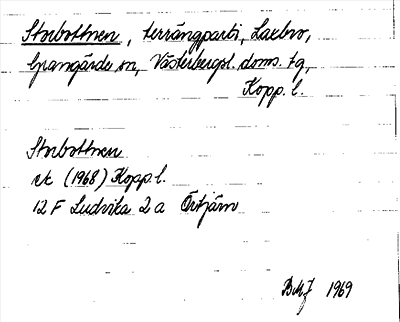 Storbottnen, terrängparti, Laxbro,
Grangärde sn, Västerbergsl. doms. tg,
Kopp. l.
Storbottnen
ek (1968) Kopp. l.
12 F Ludvika 2 a Örtjärn
1969